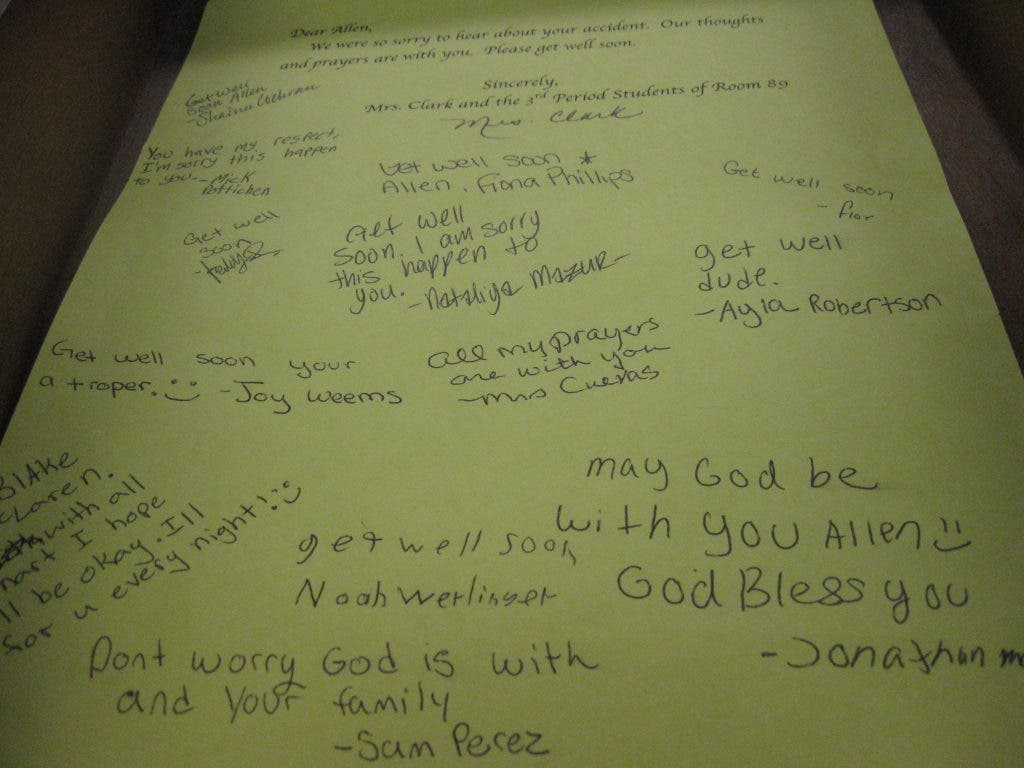 Dear Allen,
We were so sorry to hear about your accident. Our thoughts
and prayers are with you. Please get well soon.
Sincerely,
Mrs. Clark and the 3rd Period Students of Room 89
Mrs. Clark
Get well
Soon Allen
-Shaina Cothran
You have my respect,
I'm sorry this happen
to you. -Mick
Get well soon *
Allen. Fiona Phillips
Get well soon
Get well
soon
Get well
soon. I am sorry
this happen to
you. -Nataliya Mazur-
get well
dude.
-Ayla Robertson
Get well soon your
a troper. :) -Joy Weems
all my prayers
are with you
-Mrs Cuevas
BlAke
with all
I hope
ll be okay. Ill
for u every night! :)
get well soon
Noah Werlinger
may God be
with you Allen :)
God Bless you
-Jonathan m
Dont worry God is with
and your family
-Sam Perez